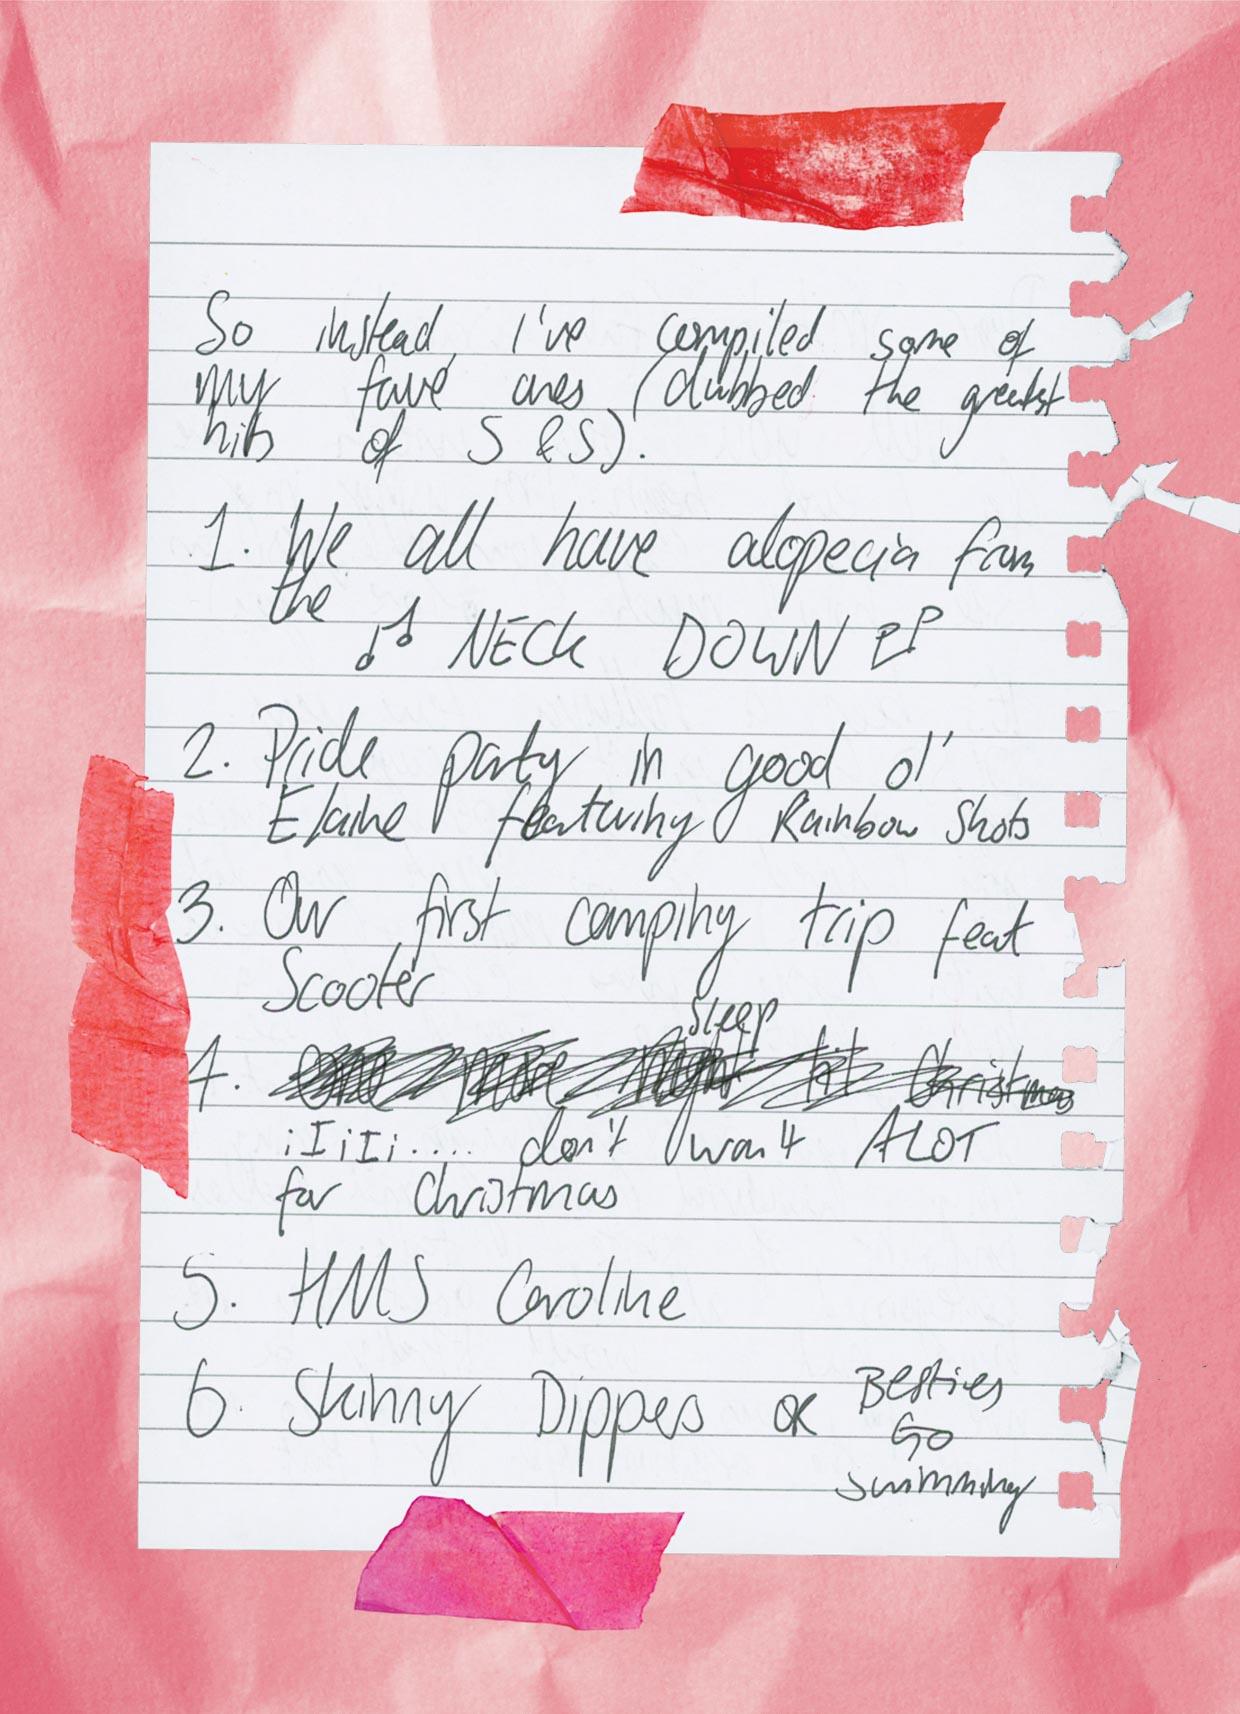 So instead, I've compiled some of
my fave ones (dubbed the greatest
hits of S & S).
1. We all have alopecia from
the
♪♪ NECK DOWN
2. Pride party in good ol'
Elaine featuring Rainbow Shots
3. Our first camping trip feat
Scooter
sleep
4. One more night til Christmas
iIiIi.... don't want ALOT
for Christmas
5. HMS Caroline
6. Skinny Dippers OR Besties
Go
swimming